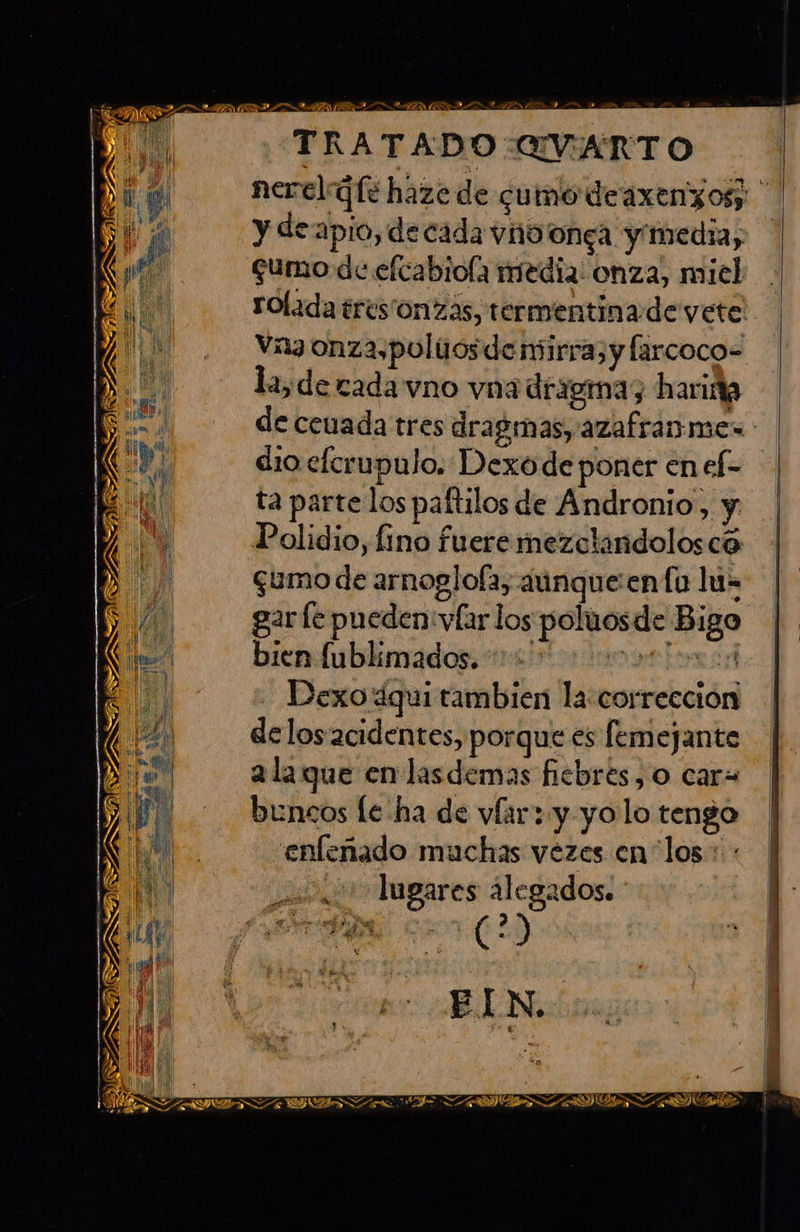 TRATADO QVARTO
nerel q̃ ſe haze de çumo de axenxos,
y de apio, de cada vno onça y media,
çumo de eſcabioſa media onza, miel
roſada tres onzas, termentina de vete
vna onza, poluos de mirra, y ſarcoco-
la, de cada vno vna dragma; harina
de ceuada tres dragmas, azafran me-
dio eſcrupulo. Dexo de poner en eſ-
ta parte los paſtilos de Andronio, y
Polidio, ſino fuere mezclandolos cõ
çumo de arnogloſa; aunque en ſu lu-
gar ſe pueden vſar los poluos de Bigo
bien ſublimados.
Dexo aqui tambien la correccion
de los acidentes, porque es ſemejante
a la que en las demas fiebres, o car-
buncos ſe ha de vſar: y yo lo tengo
enſeñado muchas vezes en los
lugares alegados.
(?)
FIN.